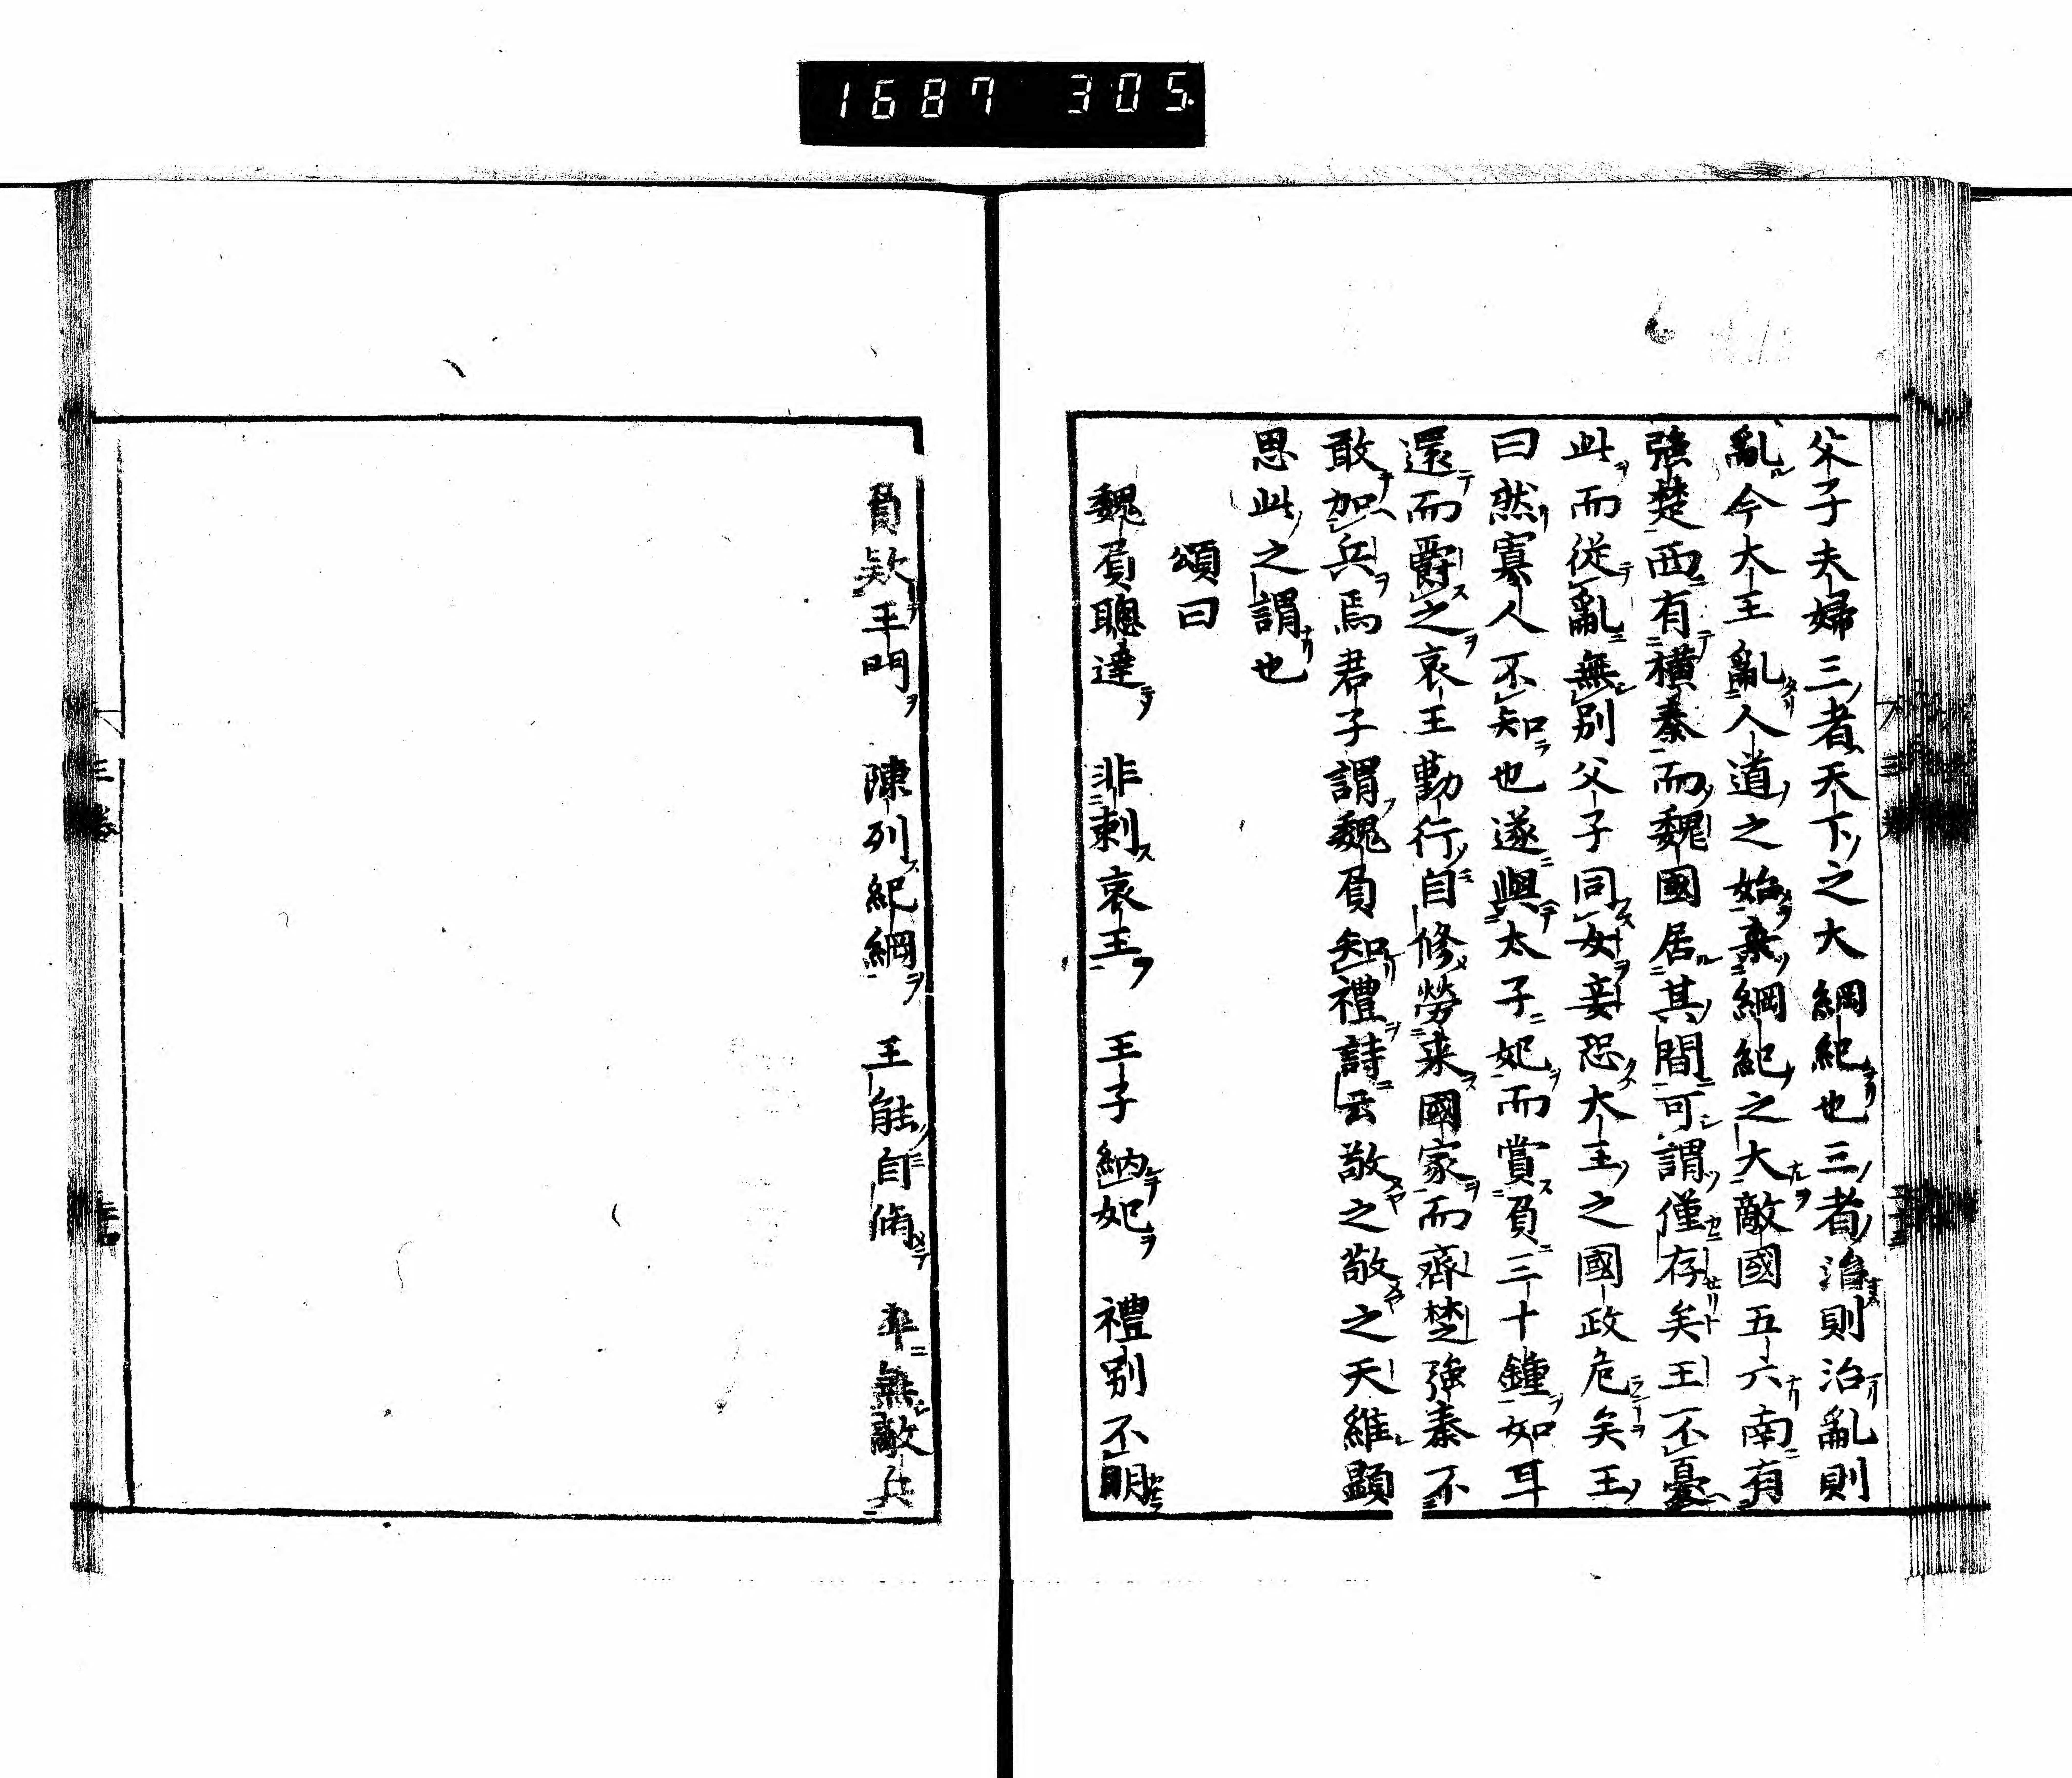 1687 305
父子夫婦三者天下之大綱紀也三者治則治亂則
亂今大王亂人道之始棄綱紀之大敵國五六南有
強楚西有橫秦而魏國居其間可謂僅存矣王不憂
此而從亂無別父子同女妾恐大王之國政危矣王
曰然寡人不知也遂與太子妃而賞負三十鍾如耳
還而爵之哀王勤行自修勞来國家而齊楚強秦不
敢加兵焉君子謂魏負知禮詩云敬之敬之天維顯
思此之謂也
頌曰
魏負聰達　非刺哀王　王子納妃　禮別不明
負欵王門　陳列紀綱　王能自脩　卒無敵兵